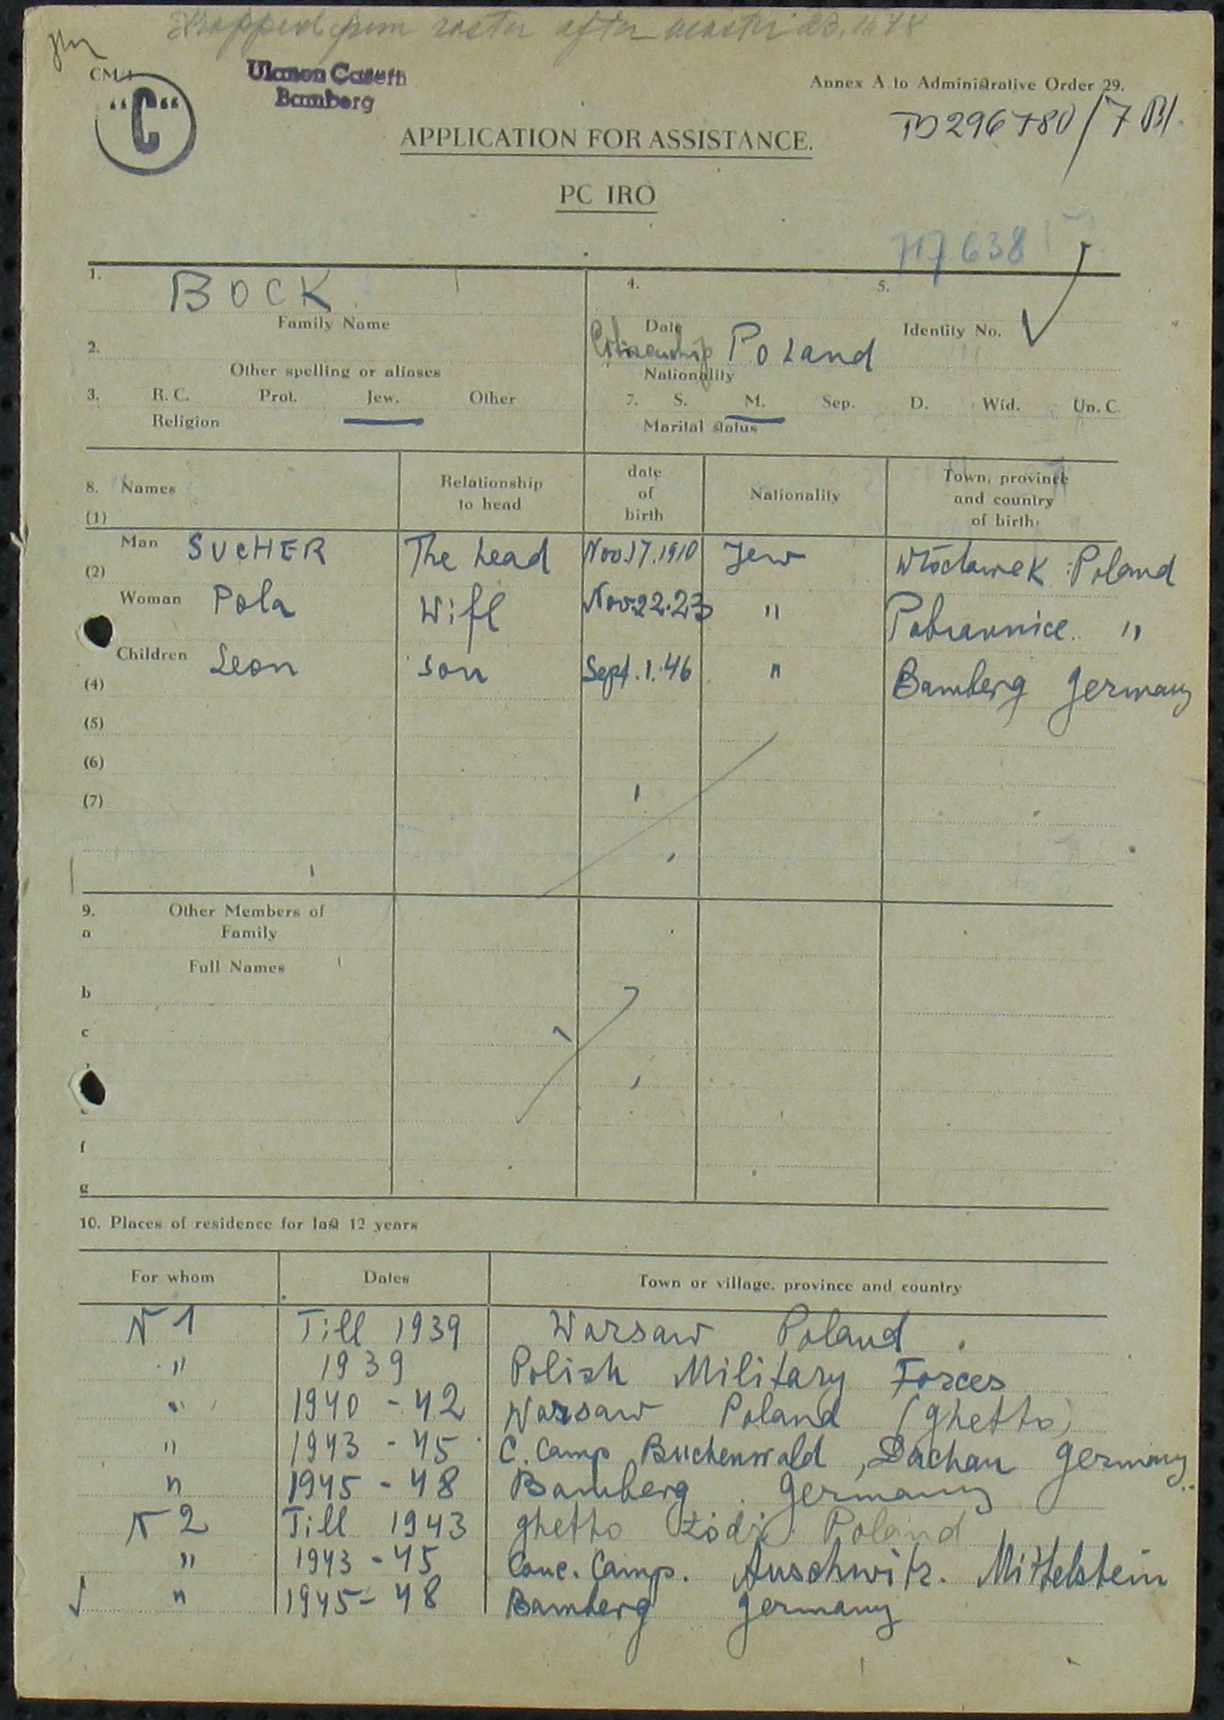 Dropped from roster after master
CM/1
"C"
Ulanen Casern
Bamberg
Annex A to Administrative Order 29.
TD 296780/7 Bl.
APPLICATION FOR ASSISTANCE.
PC IRO
117638
1. BOCK 4. 5.
Family Name Date Identity No.
2. Citizenship Poland
Other spelling or aliases Nationality
3. R. C. Prot. Jew. Other 7. S. M. Sep. D. Wid. Un. C.
Religion Marital status
8. Names Relationship to head date of birth Nationality Town, province and country of birth.
(1) Man SUCHER The head Nov. 17. 1910 Jew Włocławek Poland
(2) Woman Pola Wife Nov. 22. 23 " Pabianice "
Children Leon son Sept. 1. 46 " Bamberg Germany
(4)
(5)
(6)
(7)
9. Other Members of
a Family
Full Names
b
c
f
g
10. Places of residence for last 12 years
For whom Dates Town or village, province and country
N 1 Till 1939 Warsaw Poland
" 1939 Polish Military Forces
" 1940 - 42 Warsaw Poland (ghetto)
" 1943 - 45 C. Camp Buchenwald, Dachau Germany
" 1945 - 48 Bamberg Germany
N 2 Till 1943 ghetto Łódź Poland
" 1943 - 45 Conc. Camp. Auschwitz. Mittelstein
" 1945 - 48 Bamberg Germany